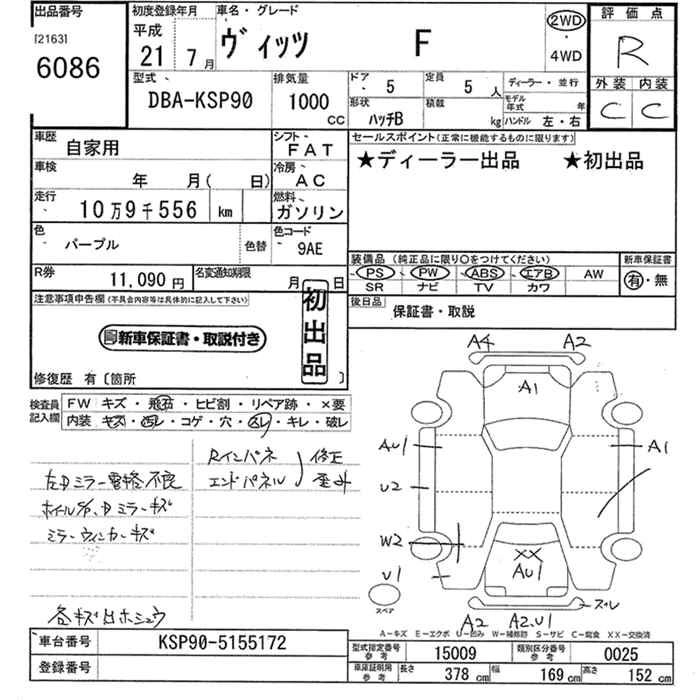 出品番号 初度登録年月 車名・グレード 評価点
[2163] 6086
平成 21年 7月
ヴィッツ F
2WD・4WD
R
型式 DBA-KSP90
排気量 1000 CC
ドア 5
定員 5人
ディーラー・並行
形状 ハッチB
積載 kg
モデル年式 年
ハンドル 左・右
外装 内装
C C
車歴 自家用
シフト FAT
セールスポイント(正常に機能するものに限ります)
★ディーラー出品 ★初出品
車検 年 月( 日)
冷房 AC
走行 10万9千556 km
燃料 ガソリン
色 パープル 色替
色コード 9AE
装備品 (純正品に限り○をつけてください) 新車保証書
PS PW ABS エアB AW 有・無
SR ナビ TV カワ
R券 11,090円 名変通知期限 月 日
後日品 保証書・取説
注意事項申告欄(不具合内容等は具体的に記入して下さい)
初出品
新車保証書・取説付き
修復歴 有〔箇所 〕
検査員記入欄
FW キズ・飛石・ヒビ割・リペア跡・×要
内装 キズ・汚レ・コゲ・穴・スレ・キレ・破レ
Rインパネ 修正
エンドパネル 歪み
左Dミラー電格不良
ホイルキズ、Dミラーキズ
ミラーウィンカーキズ
各キズ凹ホシュウ
A4 A2
A1
AU1 A1
U2
W2
XX
AU1
U1
スペア
スレ
A2 A2.U1
A-キズ E-エクボ U-凹み W-補修跡 S-サビ C-腐食 XX-交換済
車台番号 KSP90-5155172
登録番号
型式指定番号 参考 15009
類別区分番号 参考 0025
車庫証明用 参考 長さ 378 cm 幅 169 cm 高さ 152 cm